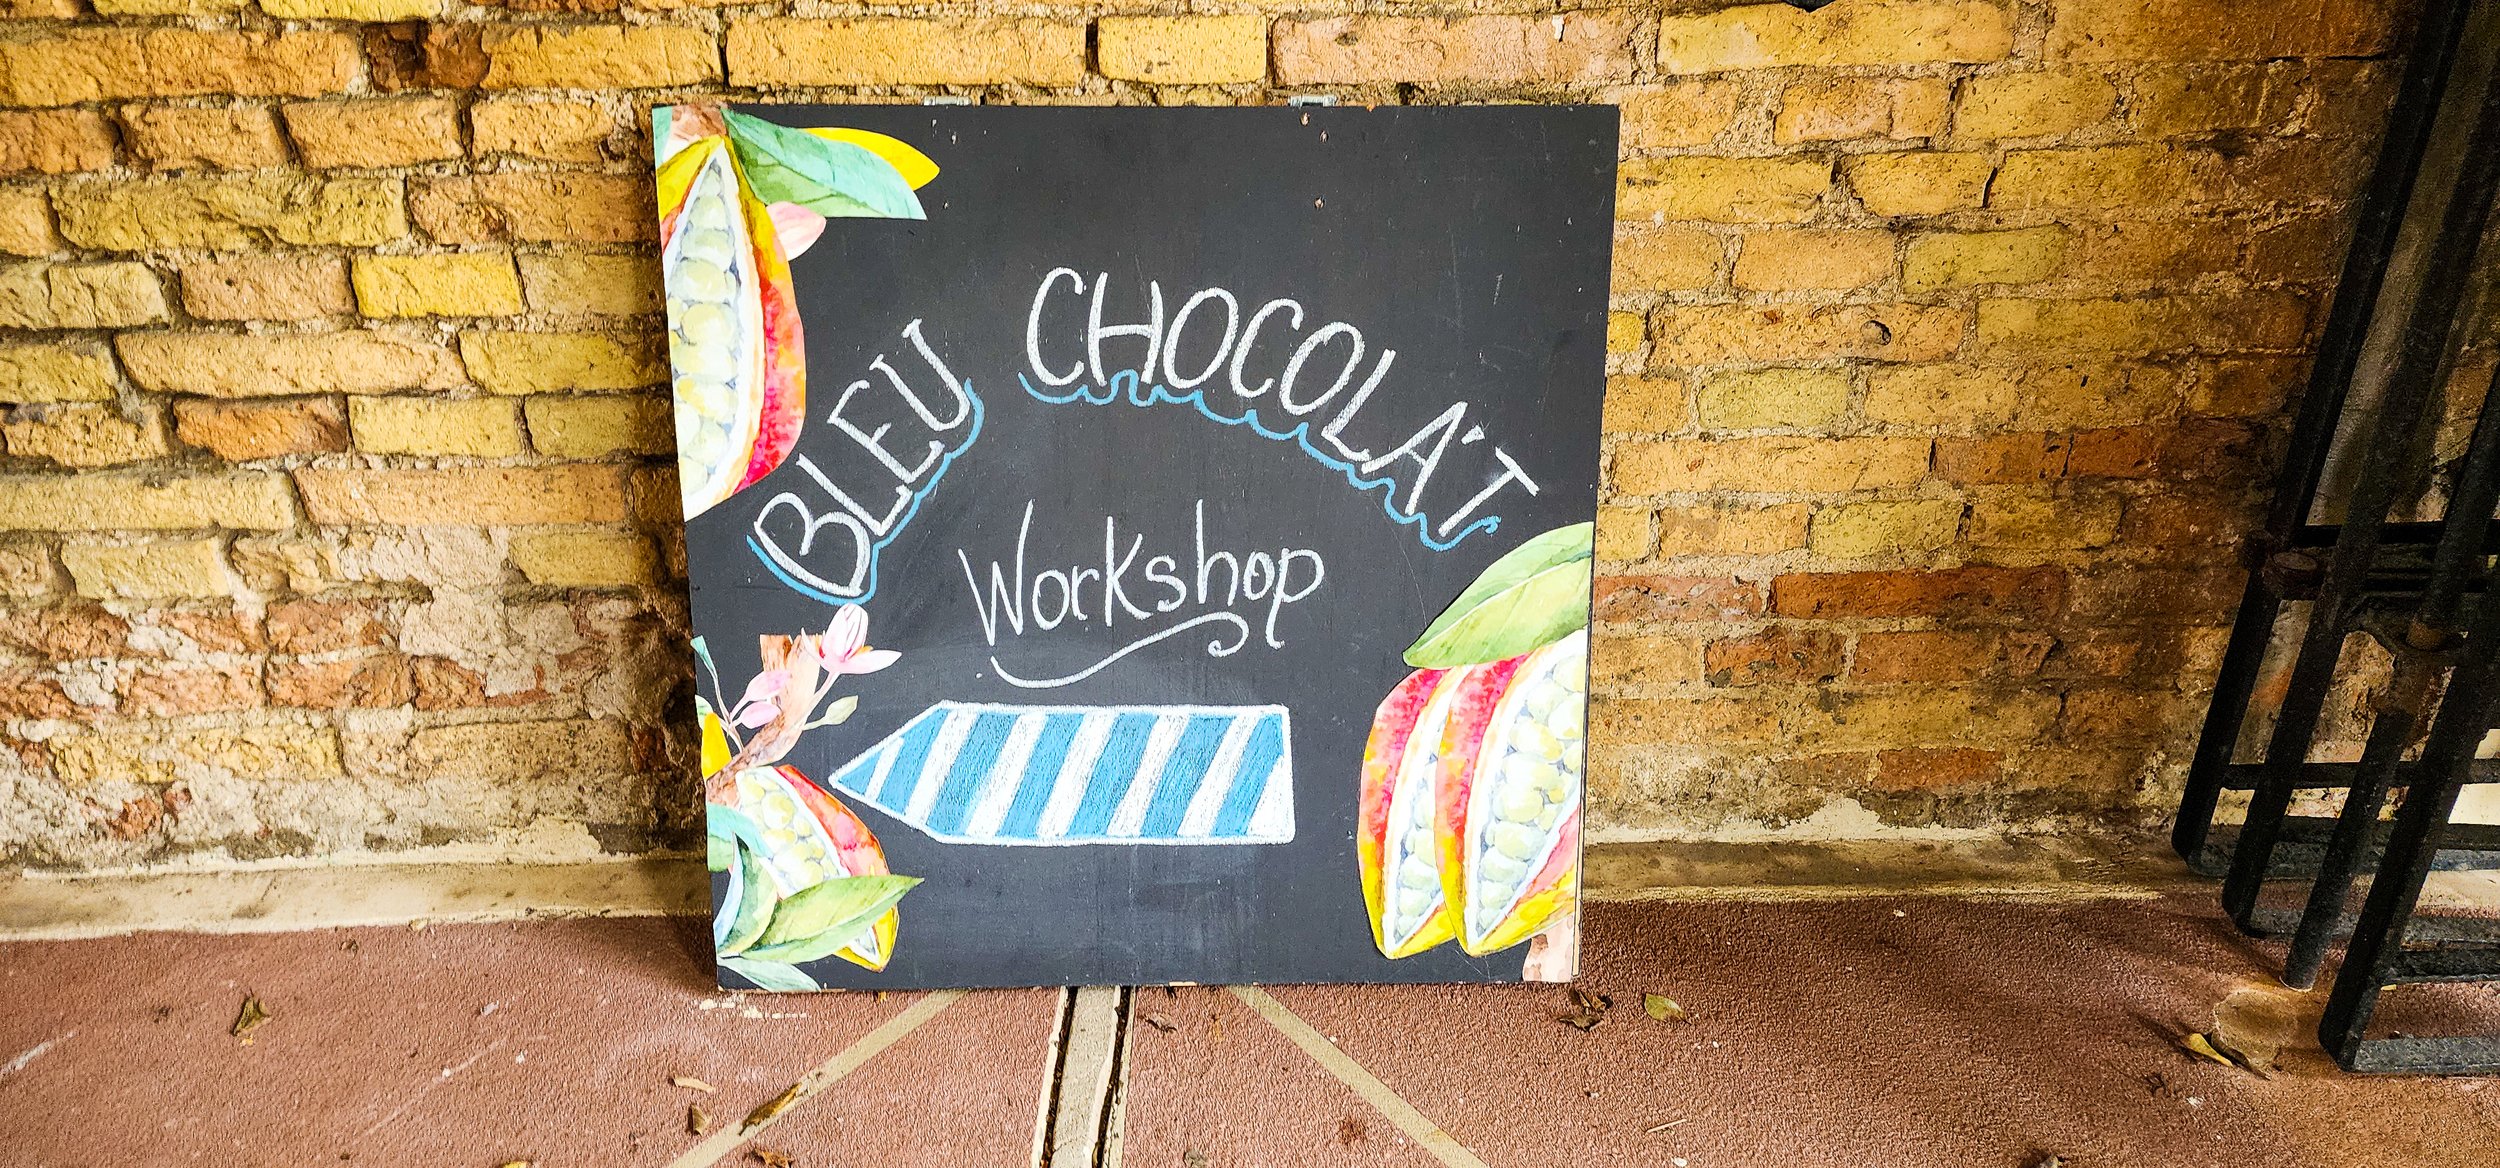 BLEU CHOCOLA'T
Workshop